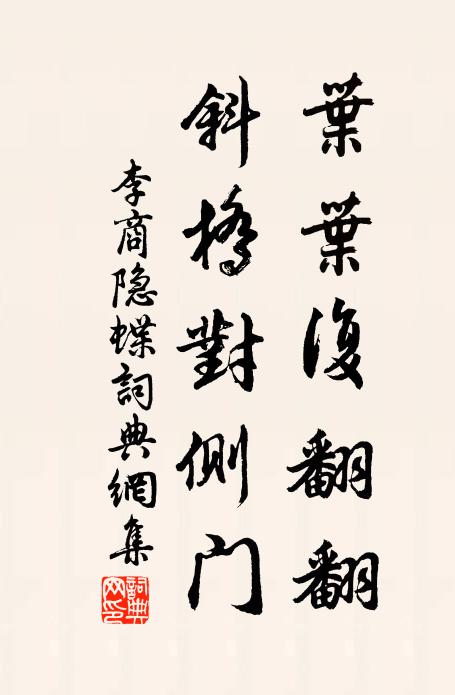 葉葉復翻翻
斜橋對側門
李商隐蝶詞典網集
詞典网印